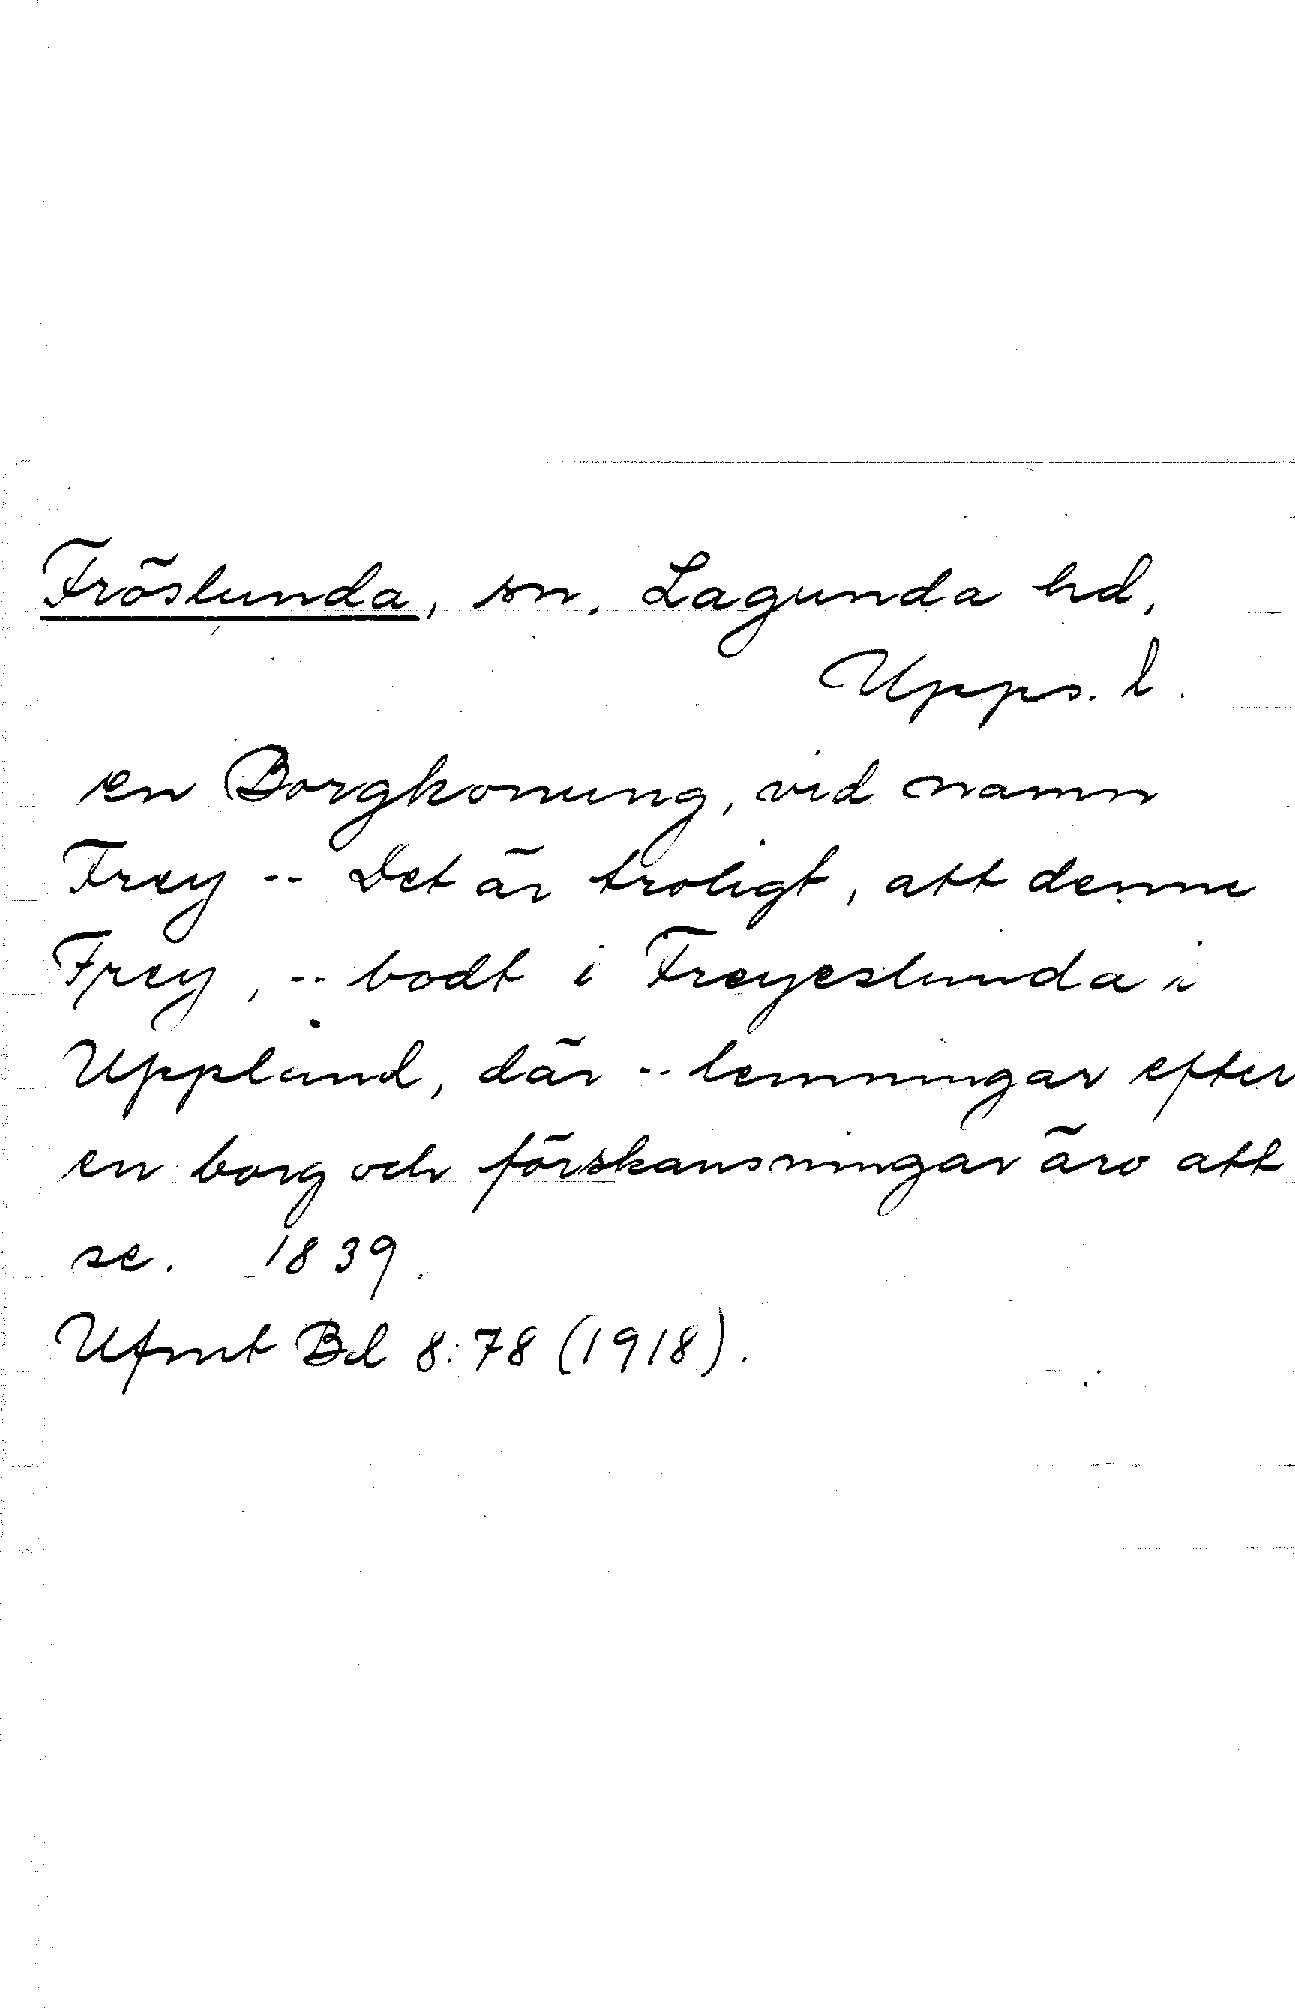 Fröslunda, sn. Lagunda hd,
Upps. l.
en Borgkonung, vid namn
Frey -- Det är troligt, att denne
Frey, -- bodt i Freyeslunda i
Uppland, där -- lemningar efter
en borg och förskansningar äro att
se. 1839.
Ufmt Bd 8:78 (1918).